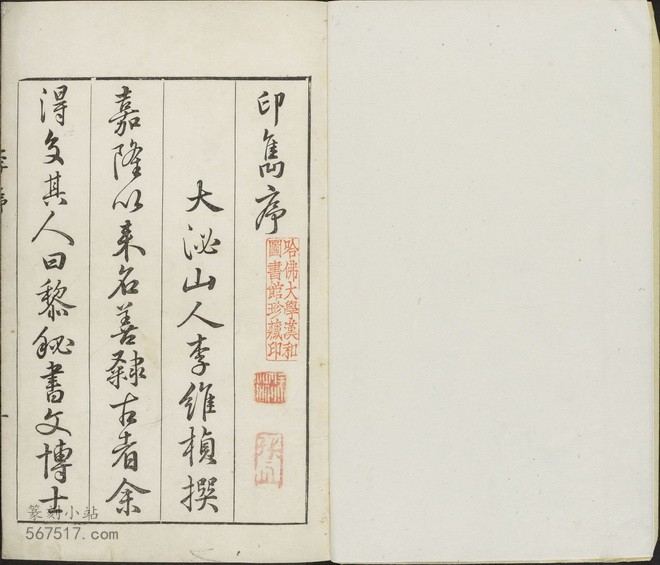 印雋序
哈佛大學漢和
圖書館珍藏印
大泌山人李維楨撰
嘉隆以來名善隸古者余
得交其人曰黎秘書文博士
李序
一
篆刻小站
567517.com